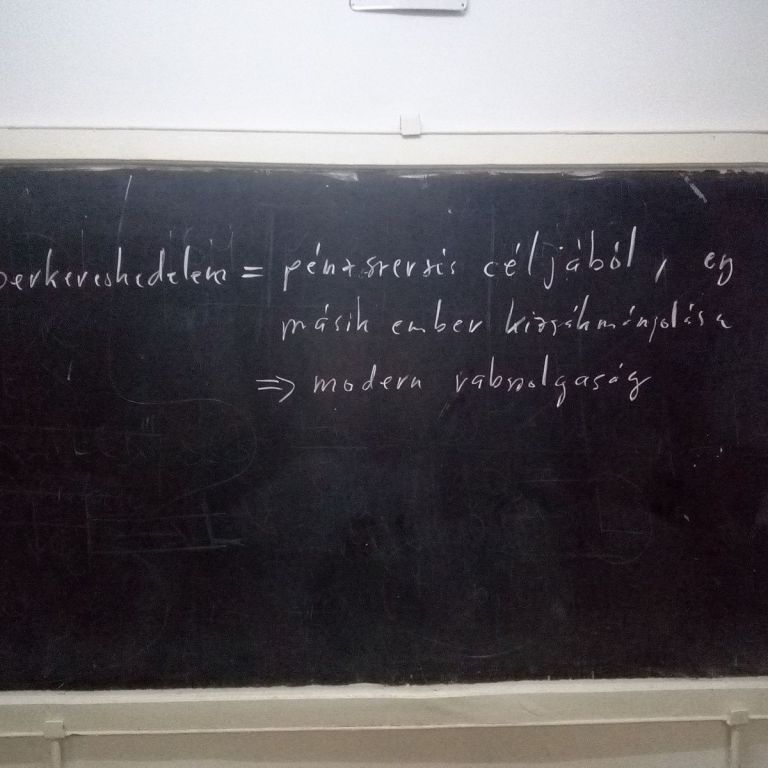 berkereskedelem = pénzszerzés céljából, egy
másik ember kizsákmányolása
⇒ modern rabszolgaság